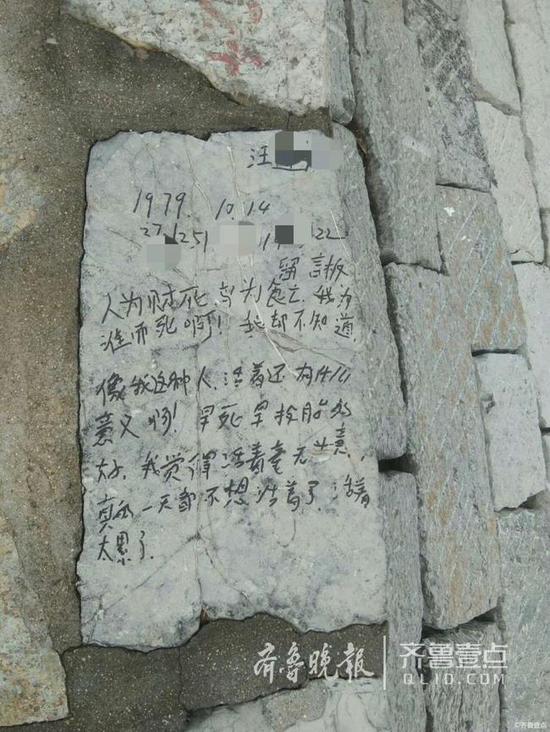 汪
1979. 10.14
27 1251 1 22
留言板
人为财死,鸟为食亡.我为
谁而死啊!我却不知道.
像我这种人,活着还有什么
意义啊!早死早投胎的
好.我觉得活着毫无生意,
真的一天都不想活着了.活着
太累了.
齐鲁晚报 齐鲁壹点
QLID.COM
©齐鲁壹点